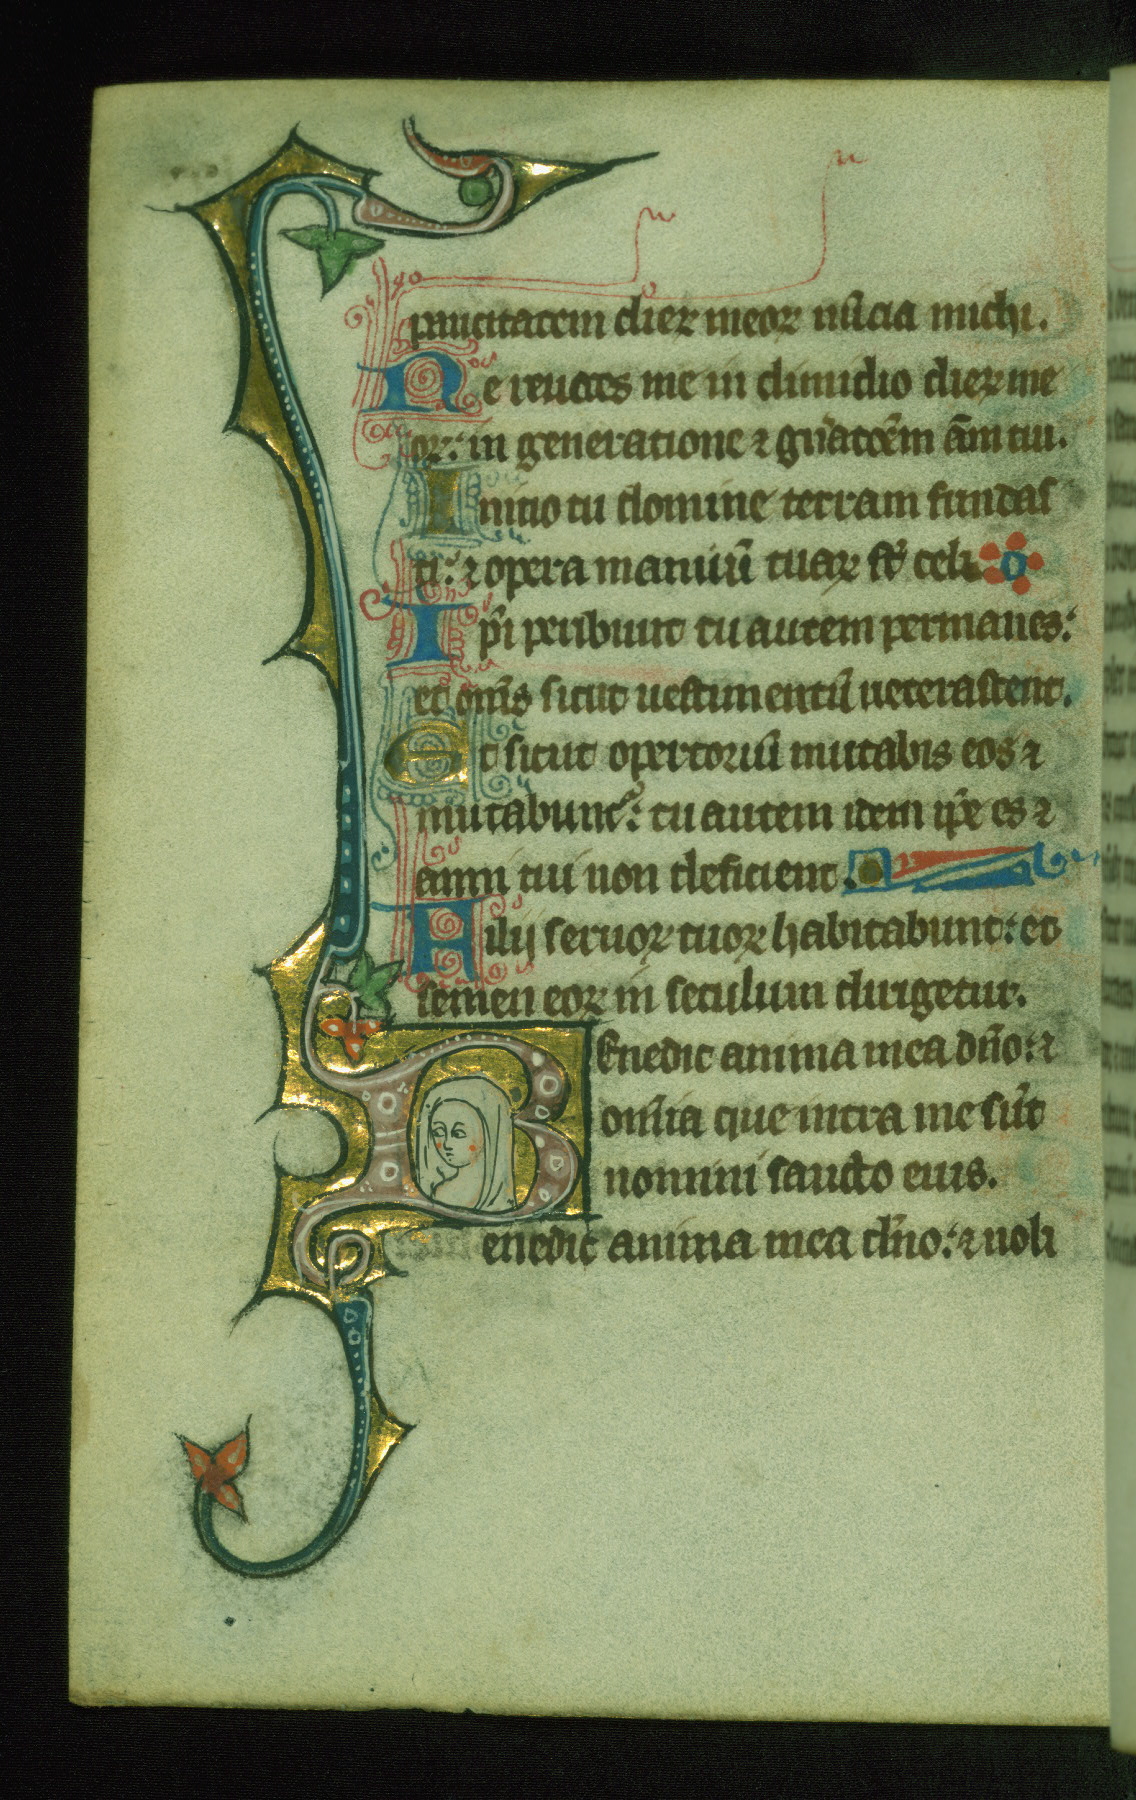 paucitatem dieꝝ meoꝝ nũcia michi.
Ne reuoces me in dimidio dieꝝ me
oꝝ: in generatione ⁊ gñatoẽm ãm tui.
Initio tu domine terram fundas
ti: ⁊ opera manuũ tuaꝝ st̃ celi
Ip̃i peribunt tu autem permanes:
et om̃s sicut uestimentũ ueterascent.
Et sicut opertoriũ mutabis eos ⁊
mutabunt᷑: tu autem idem ip̃e es ⁊
anni tui non deficient.
Filij seruoꝝ tuoꝝ habitabunt: et
semen eoꝝ in seculum dirigetur.
Benedic anima mea dño: ⁊
om̃ia que intra me sũt
nomini sancto eius.
Benedic anima mea dño: ⁊ noli